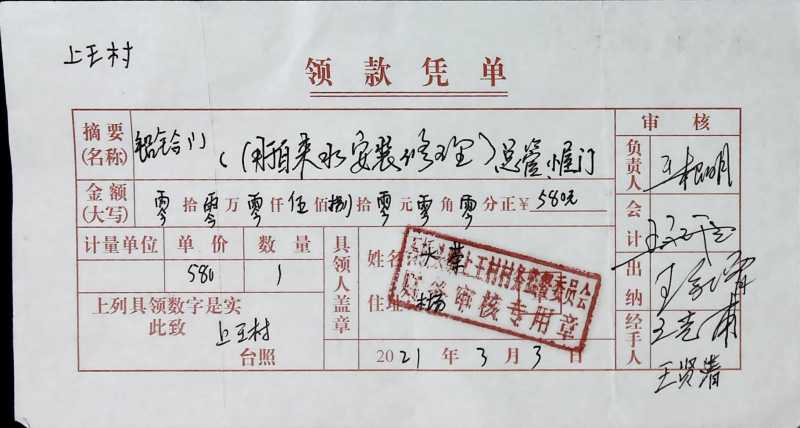 上王村
领款凭单
摘要(名称) 铝合门 (自来水安装修理) 总管 门
审核
负责人 王
金额(大写) 零拾零万零仟伍佰捌拾零元零角零分正¥580元
会计
计量单位 单价 数量
580 1
具领人盖章
姓名
住址
上王村村务监督委员会
财务审核专用章
出纳 王
上列具领数字是实
此致 上王村
台照
2021年3月3日
经手人 王
王贤清